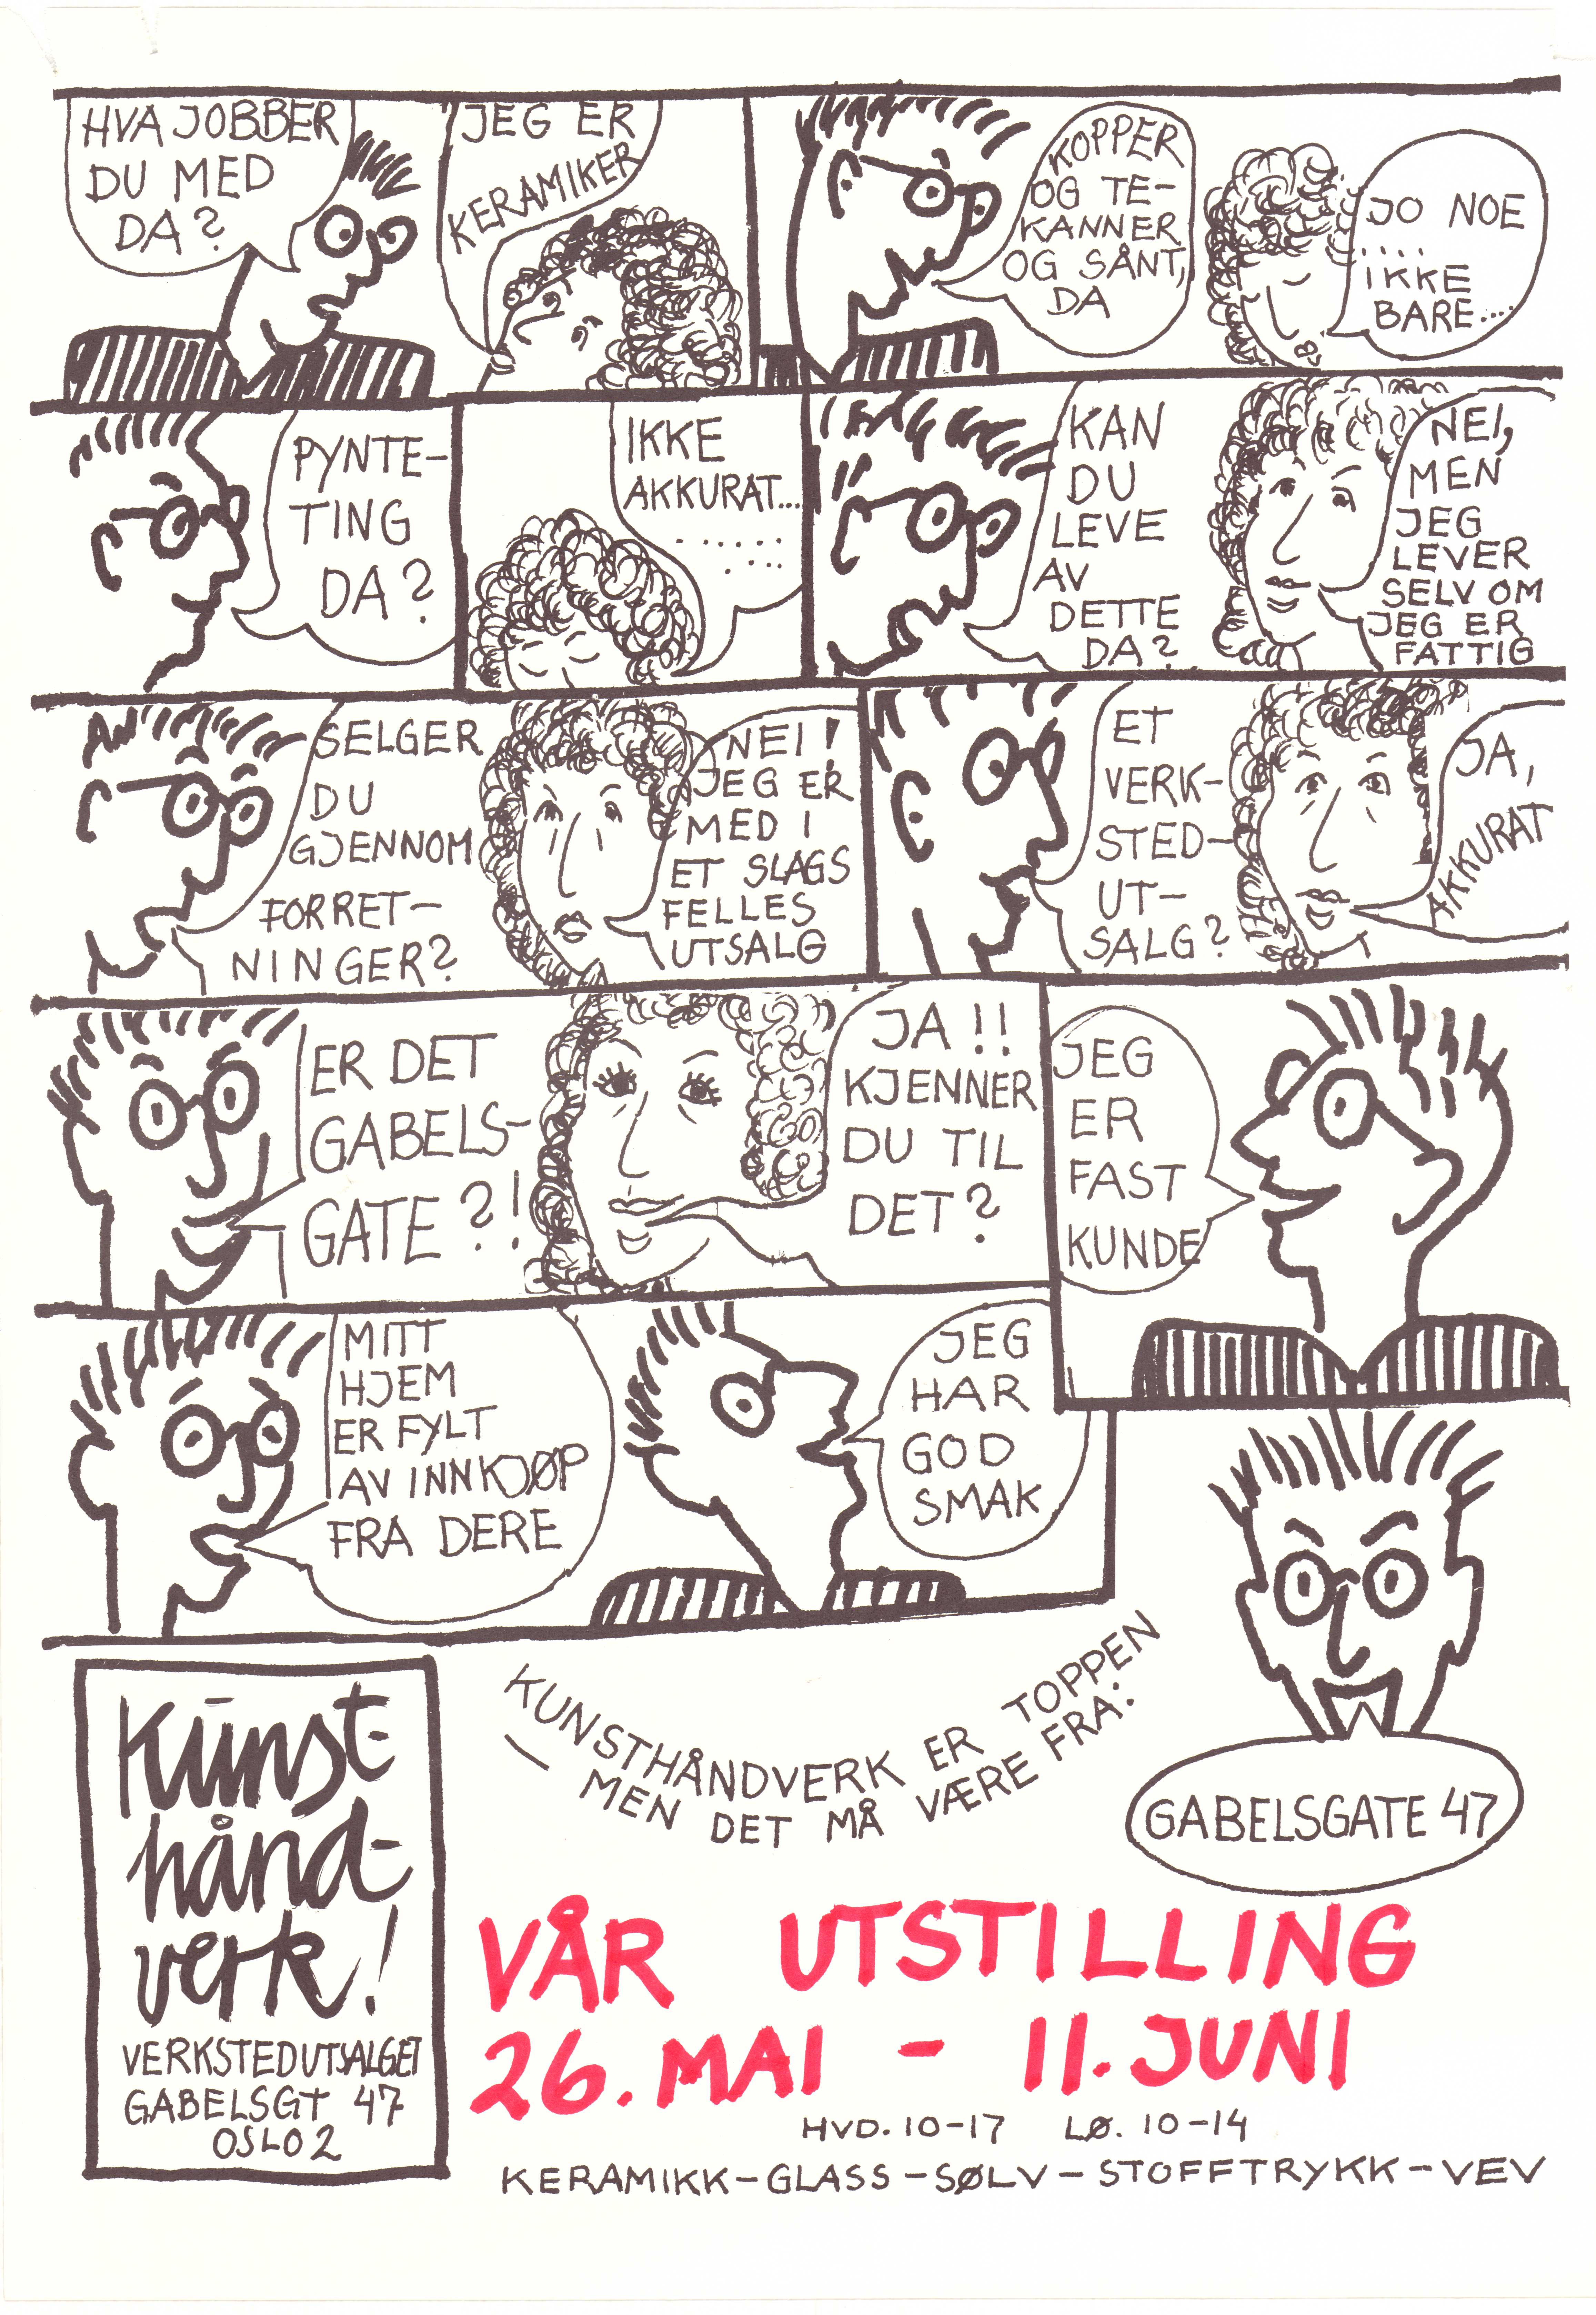 HVA JOBBER
DU MED
DA?
JEG ER
KERAMIKER
KOPPER
OG TE-
KANNER
OG SÅNT,
DA
JO NOE
....
IKKE
BARE....
PYNTE-
TING
DA?
IKKE
AKKURAT...
..........
KAN
DU
LEVE
AV
DETTE
DA?
NEI,
MEN
JEG
LEVER
SELV OM
JEG ER
FATTIG
SELGER
DU
GJENNOM
FORRET-
NINGER?
NEI!
JEG ER
MED I
ET SLAGS
FELLES
UTSALG
ET
VERK-
STED-
UT-
SALG?
JA,
AKKURAT
ER DET
GABELS-
GATE?!
JA!!
KJENNER
DU TIL
DET?
JEG
ER
FAST
KUNDE
MITT
HJEM
ER FYLT
AV INNKJØP
FRA DERE
JEG
HAR
GOD
SMAK
KUNSTHÅNDVERK ER TOPPEN
— MEN DET MÅ VÆRE FRA:
GABELSGATE 47
Kunst-
hånd-
verk!
VERKSTEDUTSALGET
GABELSGT 47
OSLO 2
VÅR UTSTILLING
26. MAI - 11. JUNI
HVD. 10-17 LØ. 10-14
KERAMIKK-GLASS-SØLV-STOFFTRYKK-VEV